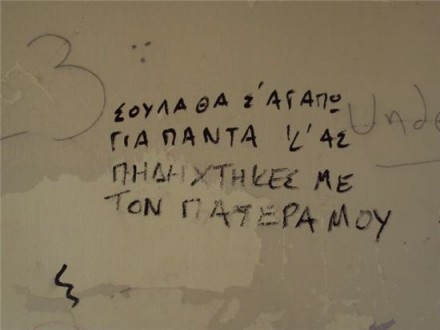 ΣΟΥΛΑ ΘΑ Σ'ΑΓΑΠΩ
ΓΙΑ ΠΑΝΤΑ Κ'ΑΣ
ΠΗΔΗΧΤΗΚΕΣ ΜΕ
ΤΟΝ ΠΑΤΕΡΑ ΜΟΥ
3